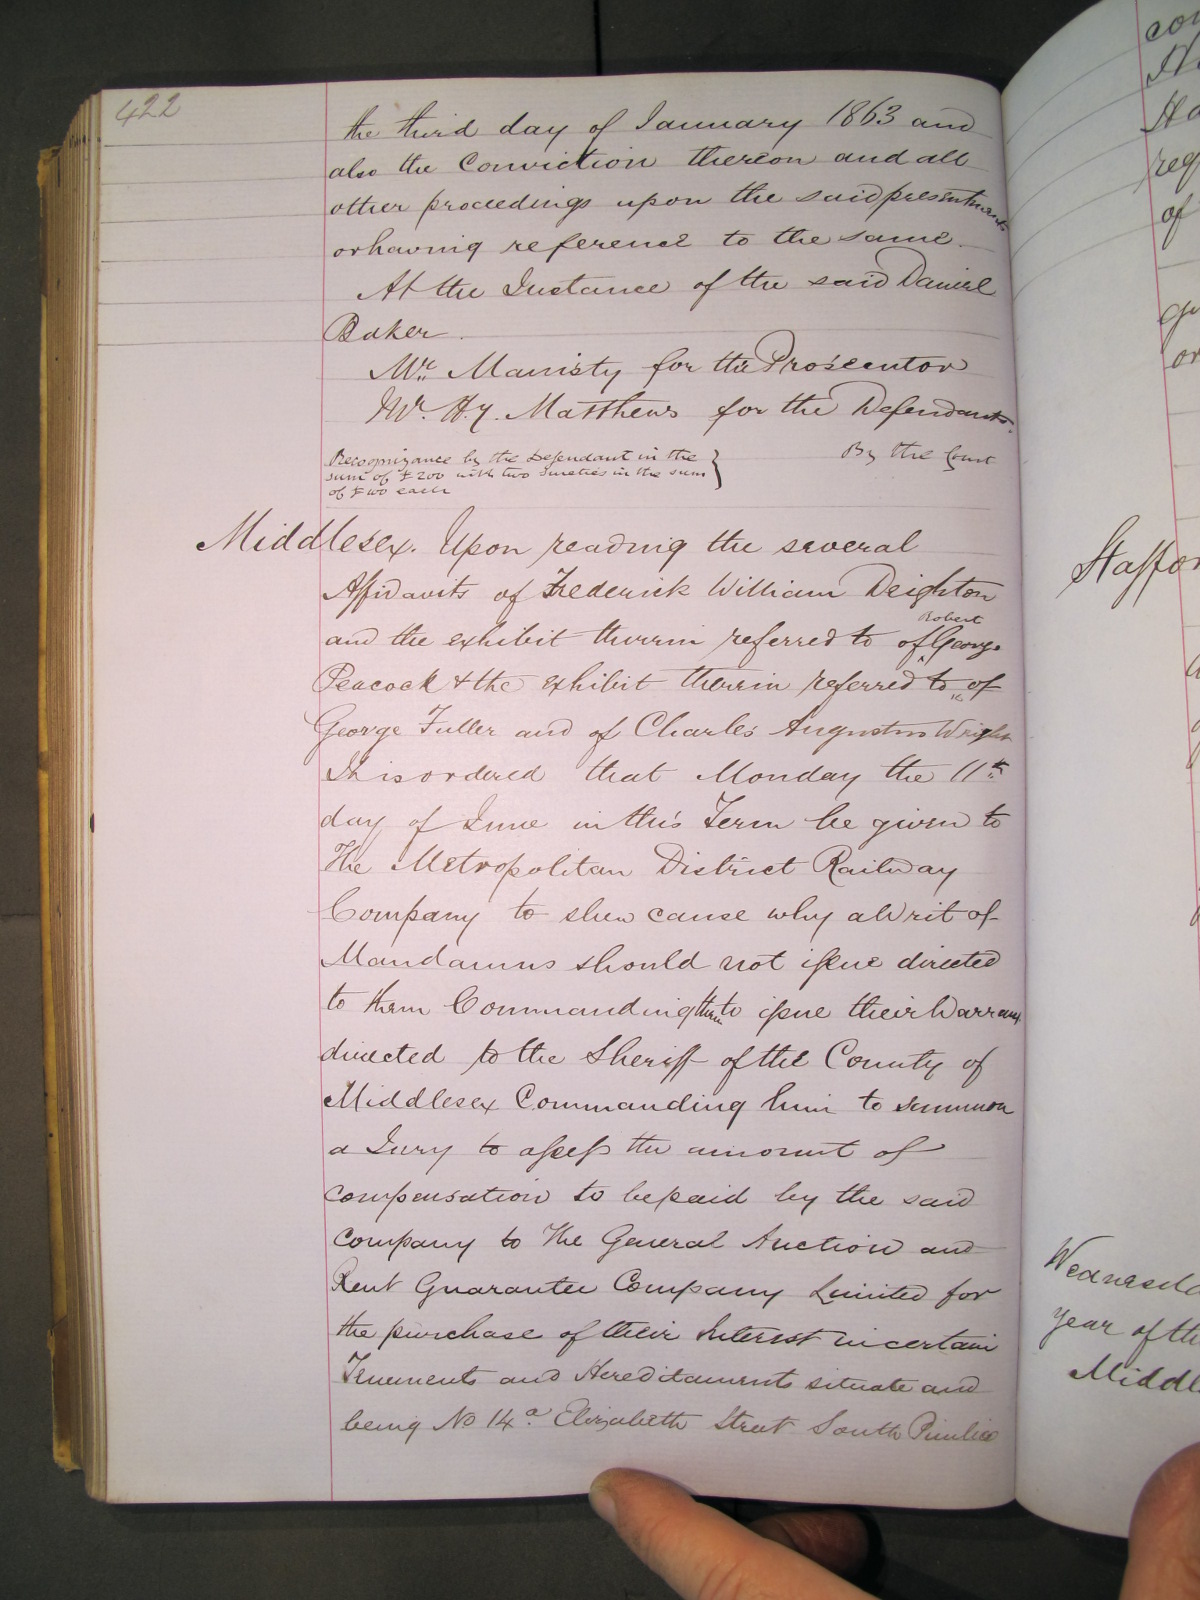 422
the third day of January 1863 and
also the Conviction thereon and all
other proceedings upon the said presentment
or having reference to the same.
At the Instance of the said Daniel
Baker.
Mr. Manisty for the Prosecutor
Mr. H.y. Matthews for the Defendants.
By the Court
Recognizance by the Defendant in the
sum of £200 with two sureties in the sum
of £100 each
Middlesex. Upon reading the several
Affidavits of Frederick William Deighton
and the exhibit therein referred to of Robert George
Peacock & the exhibit therein referred to of
George Fuller and of Charles Augustus Wright
It is ordered that Monday the 11th
day of June in this Term be given to
The Metropolitan District Railway
Company to shew cause why a Writ of
Mandamus should not issue directed
to them Commanding them to issue their Warrant
directed to the Sheriff of the County of
Middlesex Commanding him to summon
a Jury to assess the amount of
compensation to be paid by the said
Company to The General Auction and
Rent Guarantee Company Limited for
the purchase of their Interest in certain
Tenements and Hereditaments situate and
being No 14a Elizabeth Street South Pimlico
Staffor
Wednesda
year of the
Middl